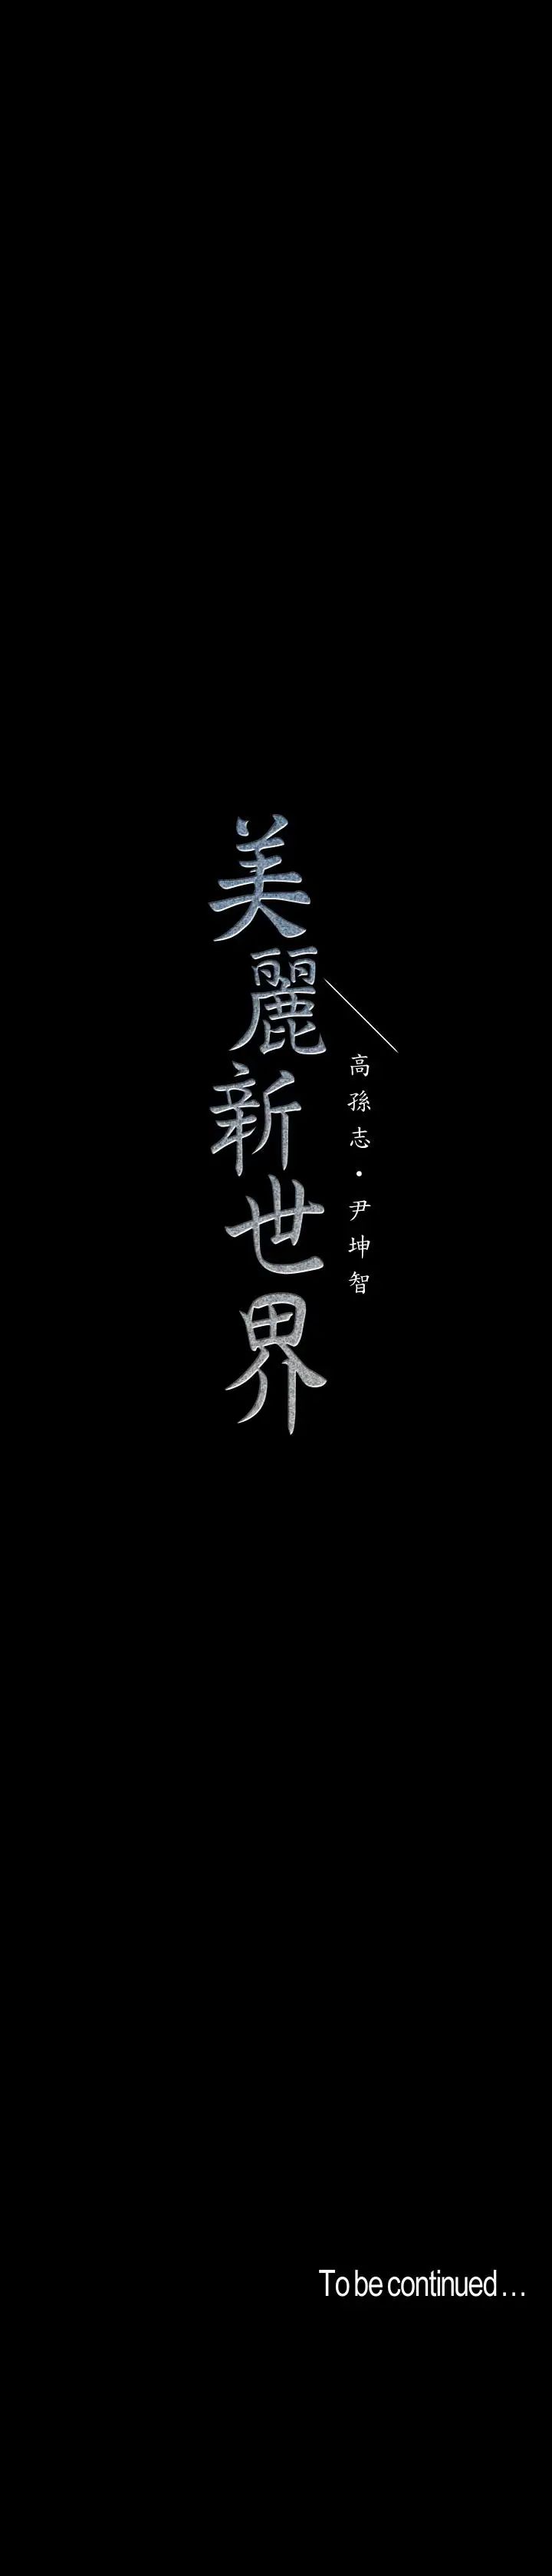 美麗新世界
高孫志·尹坤智
To be continued...